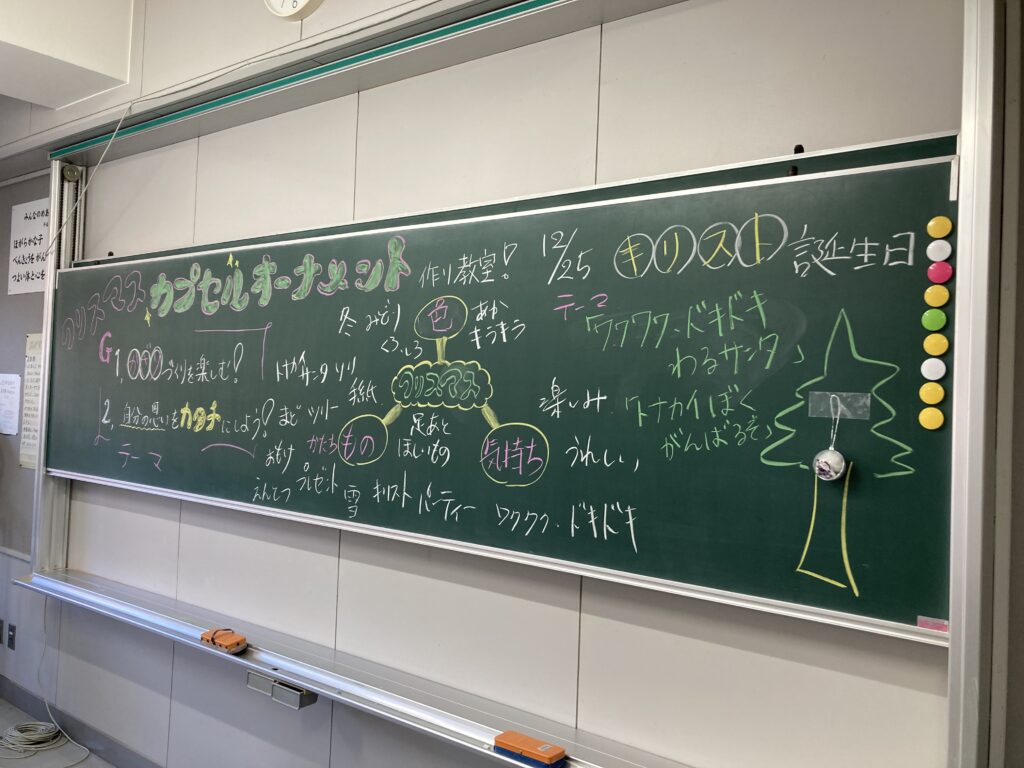 クリスマス カプセルオーナメント 作り教室!
12/25 キリスト 誕生日
G
1, づくりを楽しむ!
2, 自分の思いをカタチにしよう!
テーマ
冬 みどり
くろ、しろ
色
あか
キラキラ
クリスマス
トナカイ サンタ ソリ
手紙
まど ツリー
かたち
もの
足あと
ほしいもの
プレゼント
えんとつ
雪
キリスト パーティー
気持ち
楽しみ
うれしい
ワクワク・ドキドキ
テーマ
「ワクワク、ドキドキ
わるサンタ」
「トナカイぼく
がんばるぞ」
みんなのめあ
ほがらかな子
べんきょうを がん
つよい体と心を